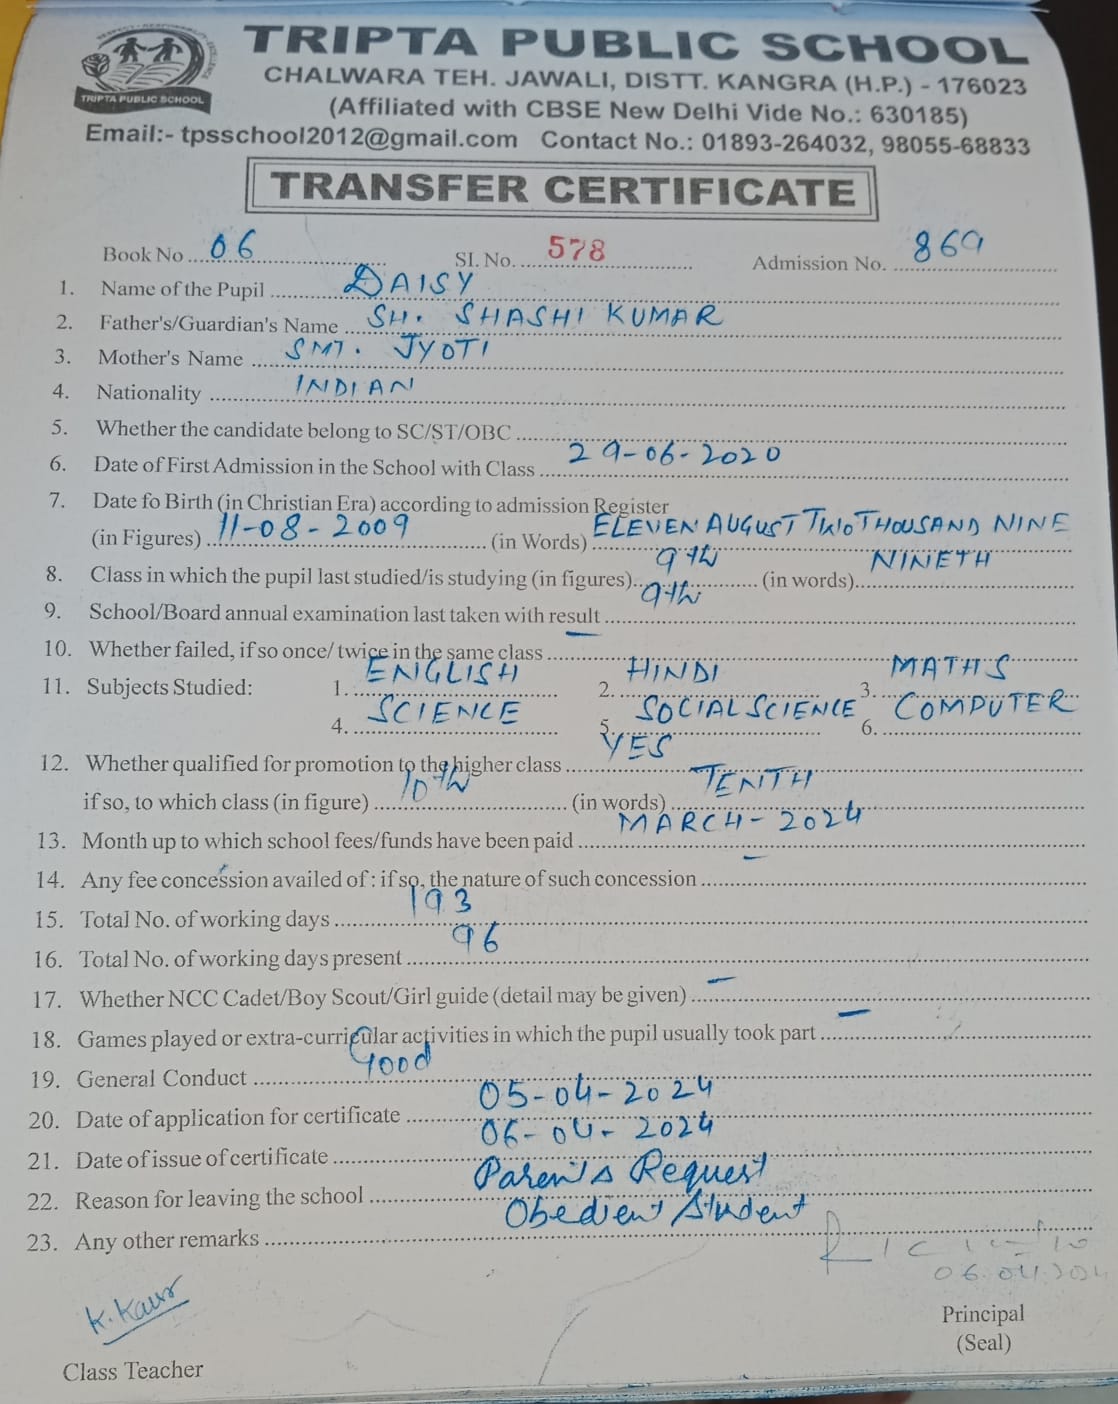 TRIPTA PUBLIC SCHOOL
TRIPTA PUBLIC SCHOOL
CHALWARA TEH. JAWALI, DISTT. KANGRA (H.P.) - 176023
(Affiliated with CBSE New Delhi Vide No.: 630185)
Email:- tpsschool2012@gmail.com Contact No.: 01893-264032, 98055-68833
TRANSFER CERTIFICATE
Book No 06 SI. No. 578 Admission No. 869
1. Name of the Pupil DAISY
2. Father's/Guardian's Name SH. SHASHI KUMAR
3. Mother's Name SMT. JYOTI
4. Nationality INDIAN
5. Whether the candidate belong to SC/ST/OBC
6. Date of First Admission in the School with Class 29-06-2020
7. Date fo Birth (in Christian Era) according to admission Register
(in Figures) 11-08-2009 (in Words) ELEVEN AUGUST TWO THOUSAND NINE
8. Class in which the pupil last studied/is studying (in figures) 9th (in words) NINETH
9. School/Board annual examination last taken with result 9th
10. Whether failed, if so once/ twice in the same class -
11. Subjects Studied: 1. ENGLISH 2. HINDI 3. MATHS
4. SCIENCE 5. SOCIAL SCIENCE 6. COMPUTER
12. Whether qualified for promotion to the higher class YES
if so, to which class (in figure) 10th (in words) TENTH
13. Month up to which school fees/funds have been paid MARCH-2024
14. Any fee concession availed of : if so, the nature of such concession -
15. Total No. of working days 193
16. Total No. of working days present 96
17. Whether NCC Cadet/Boy Scout/Girl guide (detail may be given) -
18. Games played or extra-curricular activities in which the pupil usually took part -
19. General Conduct Good
20. Date of application for certificate 05-04-2024
21. Date of issue of certificate 06-04-2024
22. Reason for leaving the school Parent's Request
23. Any other remarks Obedient Student
K. Kaur
Principal
(Seal)
Class Teacher